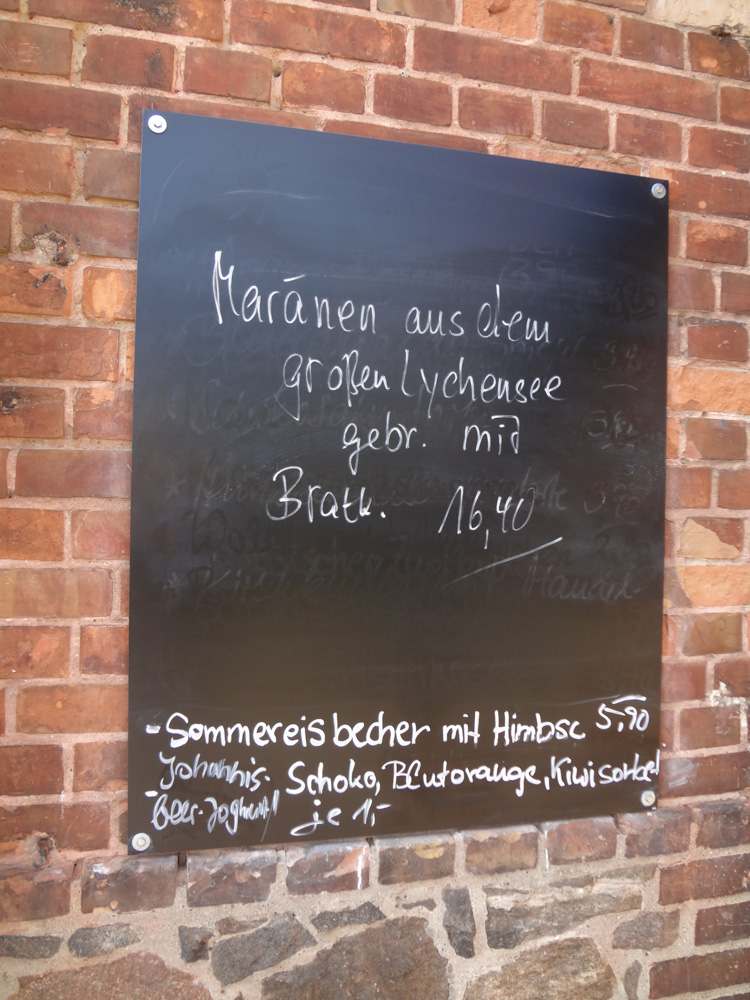 Maränen aus dem
großen Lychensee
gebr. mit
Bratk. 16,40
- Sommereisbecher mit Himbsc 5,90
Johannis- Schoko, Blutorange, Kiwisorbet
beer-Joghurt je 1,-